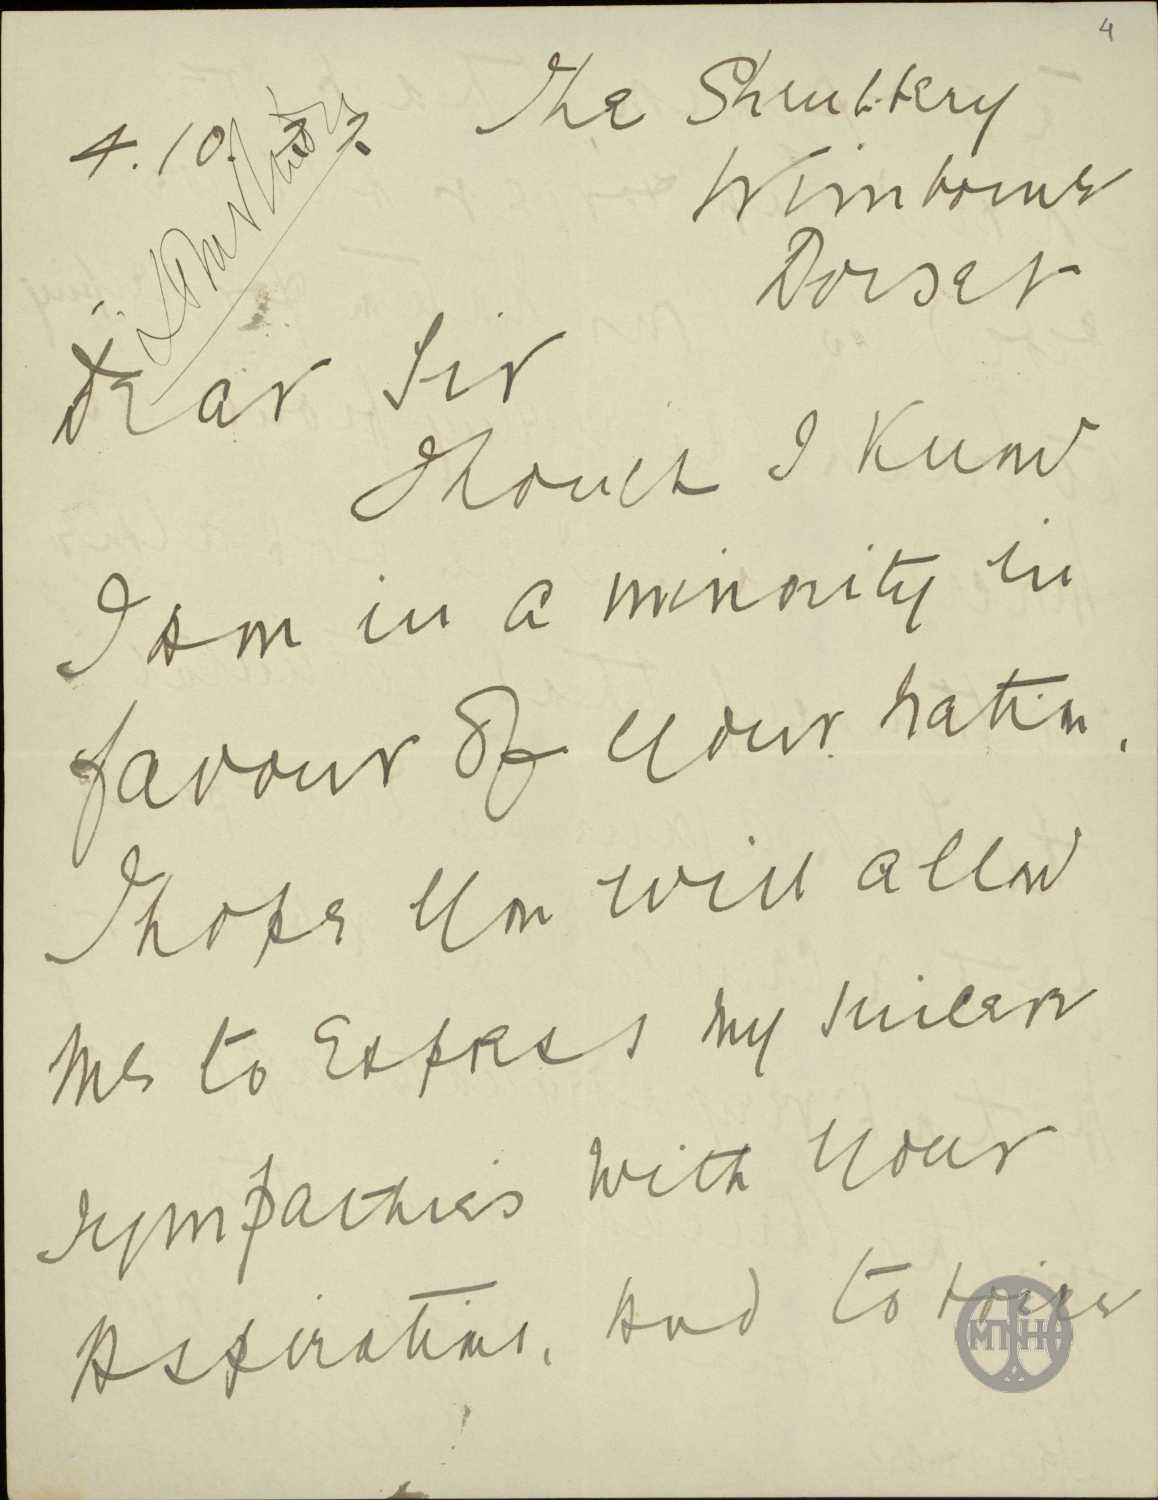 4
4.10.22
The Shrubbery
Wimborne
Dorset
Dear Sir
Though I know
I am in a minority in
favour of your nation,
I hope you will allow
me to express my sincere
sympathies with your
aspirations, and to voice